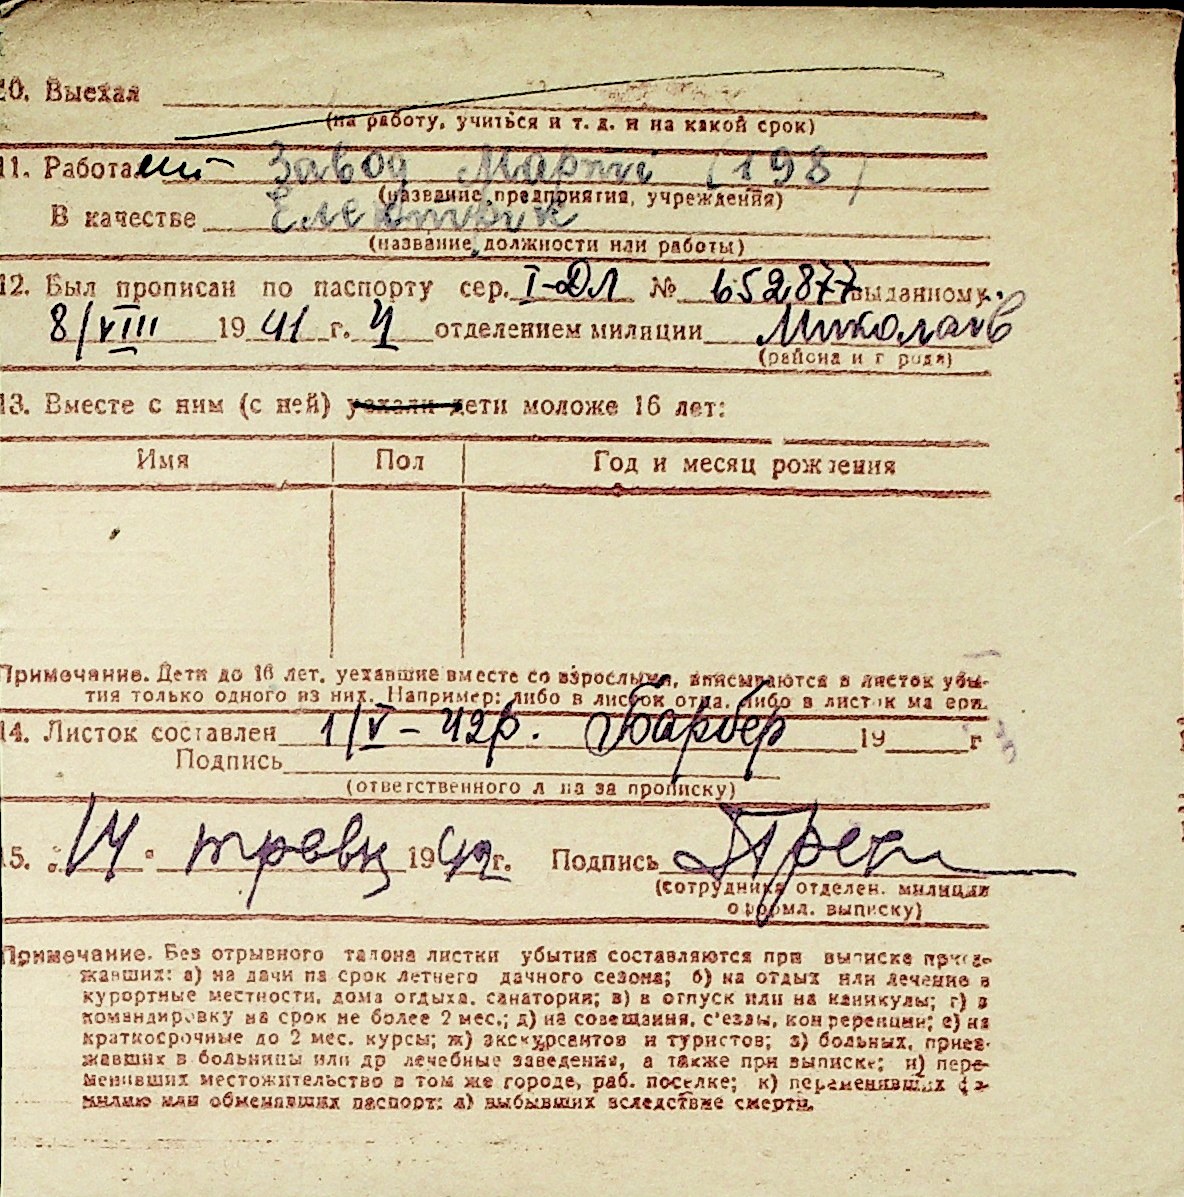 10. Выехал
(на работу, учиться и т. д. и на какой срок)
11. Работа Завод Марті (198)
(название предприятия, учреждения)
В качестве Електрик
(название должности или работы)
12. Был прописан по паспорту сер. I-ДЛ № 652877 выданному
8/VIII 1941 г. 4 отделением милиции Миколаїв
(района и города)
13. Вместе с ним (с ней) уехали дети моложе 16 лет:
Имя Пол Год и месяц рождения
Примечание. Дети до 16 лет, уехавшие вместе со взрослыми, вписываются в листок убы-
тия только одного из них. Например: либо в листок отца, либо в листок матери.
14. Листок составлен 1/V-42р. Барбер 19 г
Подпись
(ответственного лица за прописку)
15. "14" травн 1942 г. Подпись
(сотрудника отделен. милиции
оформл. выписку)
Примечание. Без отрывного талона листки убытия составляются при выписке приез-
жавших: а) на дачи на срок летнего дачного сезона; б) на отдых или лечение в
курортные местности, дома отдыха, санатории; в) в отпуск или на каникулы; г) в
командировку на срок не более 2 мес.; д) на совещания, с'езды, конференции; е) на
краткосрочные до 2 мес. курсы; ж) экскурсантов и туристов; з) больных, приез-
жавших в больницы или др лечебные заведения, а также при выписке; и) пере-
менивших местожительство в том же городе, раб. поселке; к) переменивших фа-
милию или обменявших паспорт; л) выбывших вследствие смерти.